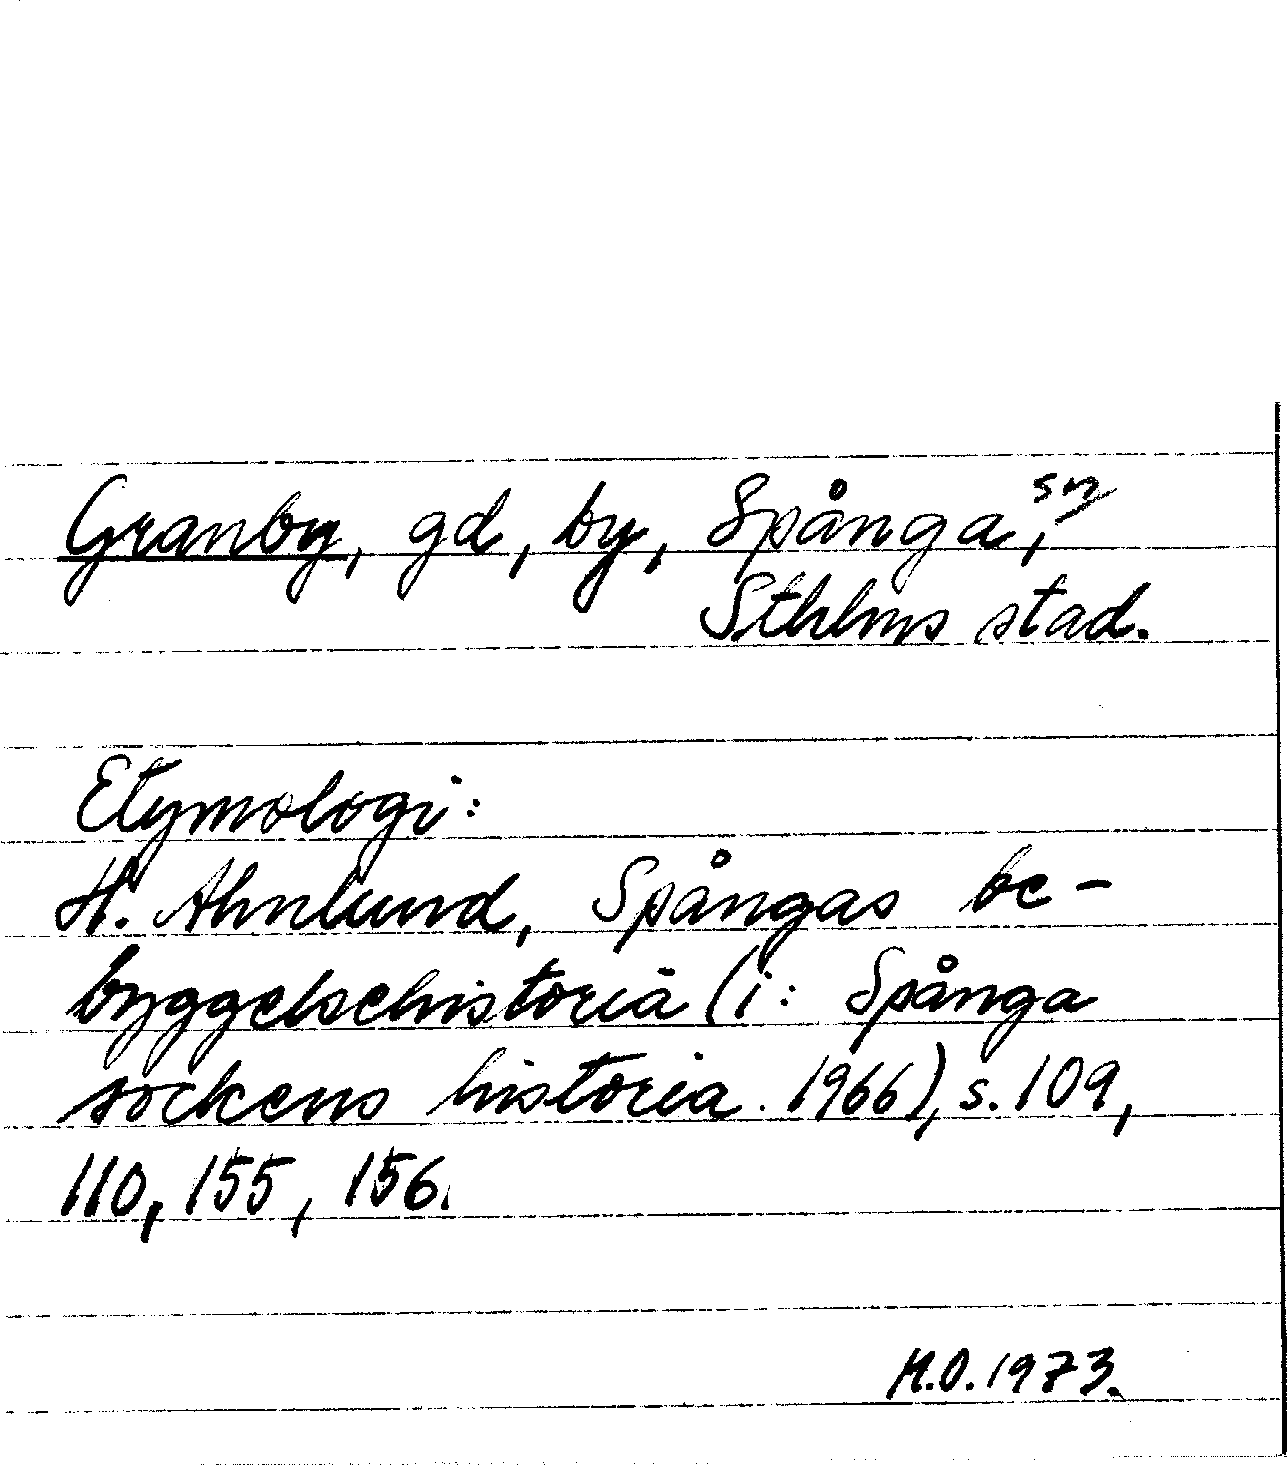 Granby, gd, by, Spånga sn,
Sthlms stad.
Etymologi:
H. Ahnlund, Spångas be-
byggelsehistoria (i: Spånga
sockens historia. 1966), s. 109,
110, 155, 156.
M.O. 1973.